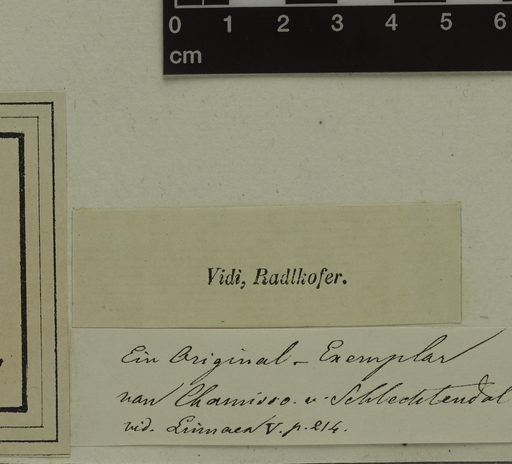 0 1 2 3 4 5 6
cm
Vidi, Radlkofer.
Ein Original - Exemplar
van Chamisso. v. Schlechtendal
vid. Linnaea V. p. 214.